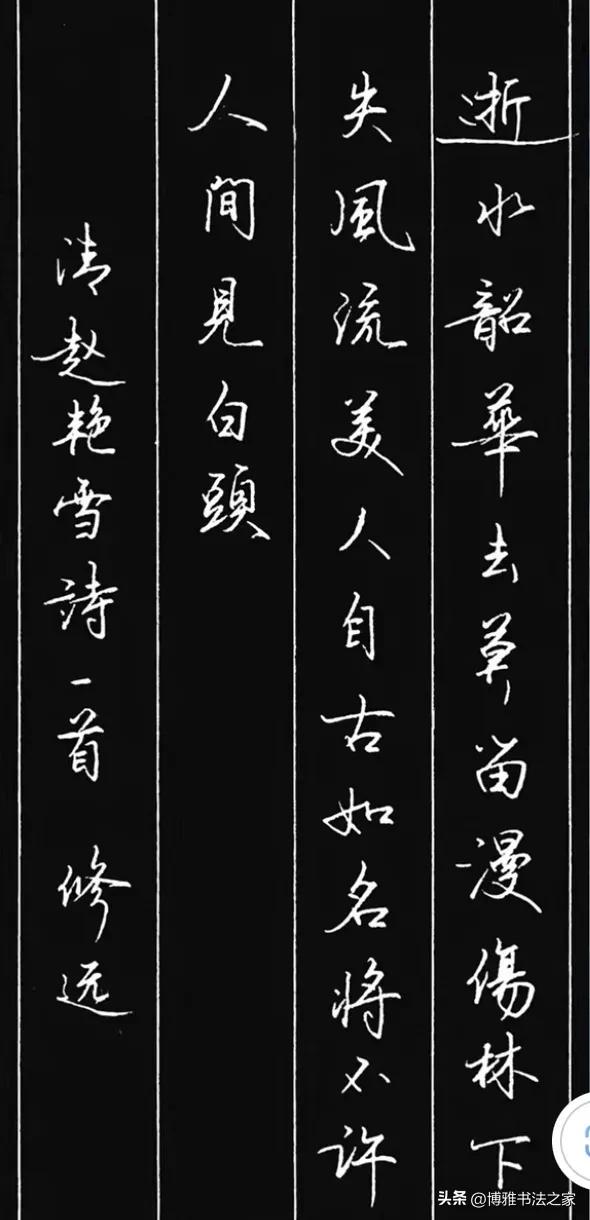 逝水韶華去莫留漫傷林下
失風流美人自古如名將不許
人間見白頭
清赵艳雪詩一首 修远
头条 @博雅书法之家